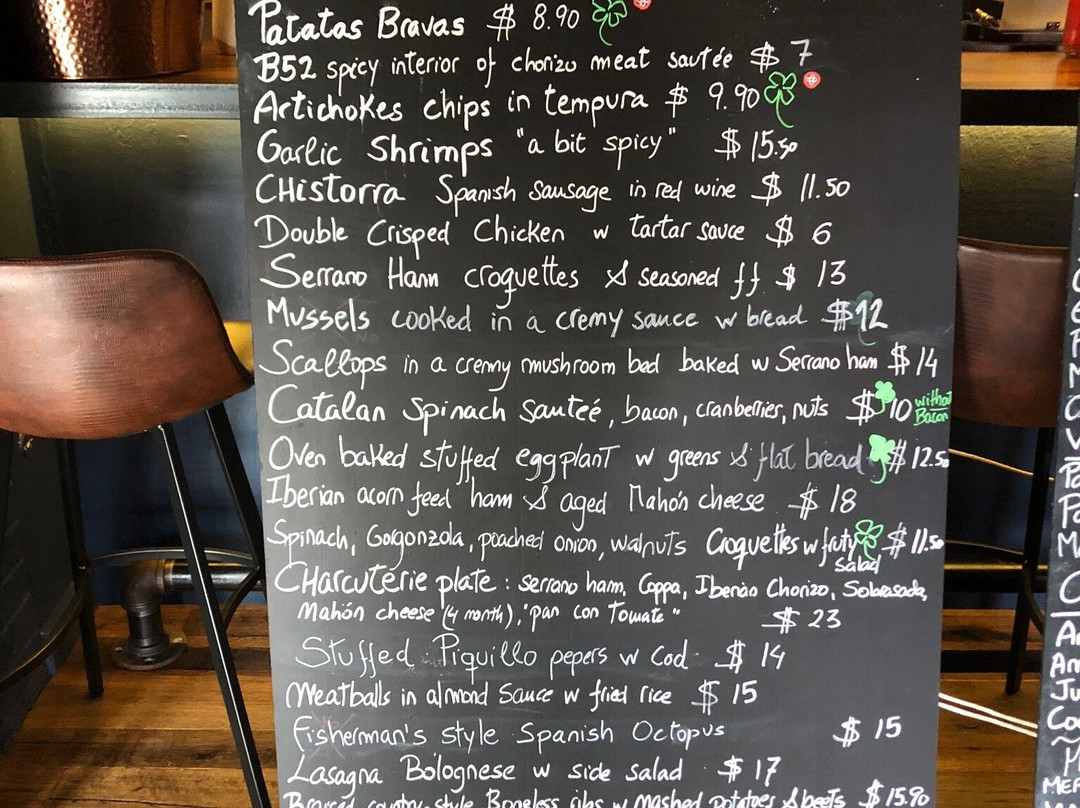 Patatas Bravas $ 8.90
B52 spicy interior of chorizo meat sautée $ 7
Artichokes chips in tempura $ 9.90
Garlic Shrimps "a bit spicy" $ 15.50
CHistorra Spanish sausage in red wine $ 11.50
Double Crisped Chicken w tartar sauce $ 6
Serrano Ham croquettes & seasoned ff $ 13
Mussels cooked in a cremy sauce w bread $ 12
Scallops in a cremy mushroom bad baked w Serrano ham $ 14
Catalan Spinach sauteé, bacon, cranberries, nuts $ 10 without Bacon
Oven baked stuffed eggplant w greens & flat bread $ 12.50
Iberian acorn feed ham & aged Mahón cheese $ 18
Spinach, Gorgonzola, poached onion, walnuts Croquettes w fruty salad $ 11.50
CHarcuterie plate : serrano ham, Coppa, Iberian Chorizo, Sobrasada,
Mahón cheese (4 month), "pan con Tomate" $ 23
Stuffed Piquillo pepers w Cod $ 14
Meatballs in almond Sauce w fried rice $ 15
Fisherman's style Spanish Octopus $ 15
Lasagna Bolognese w side salad $ 17
country-style Boneless ribs w mashed potatoes & beets $ 15.90